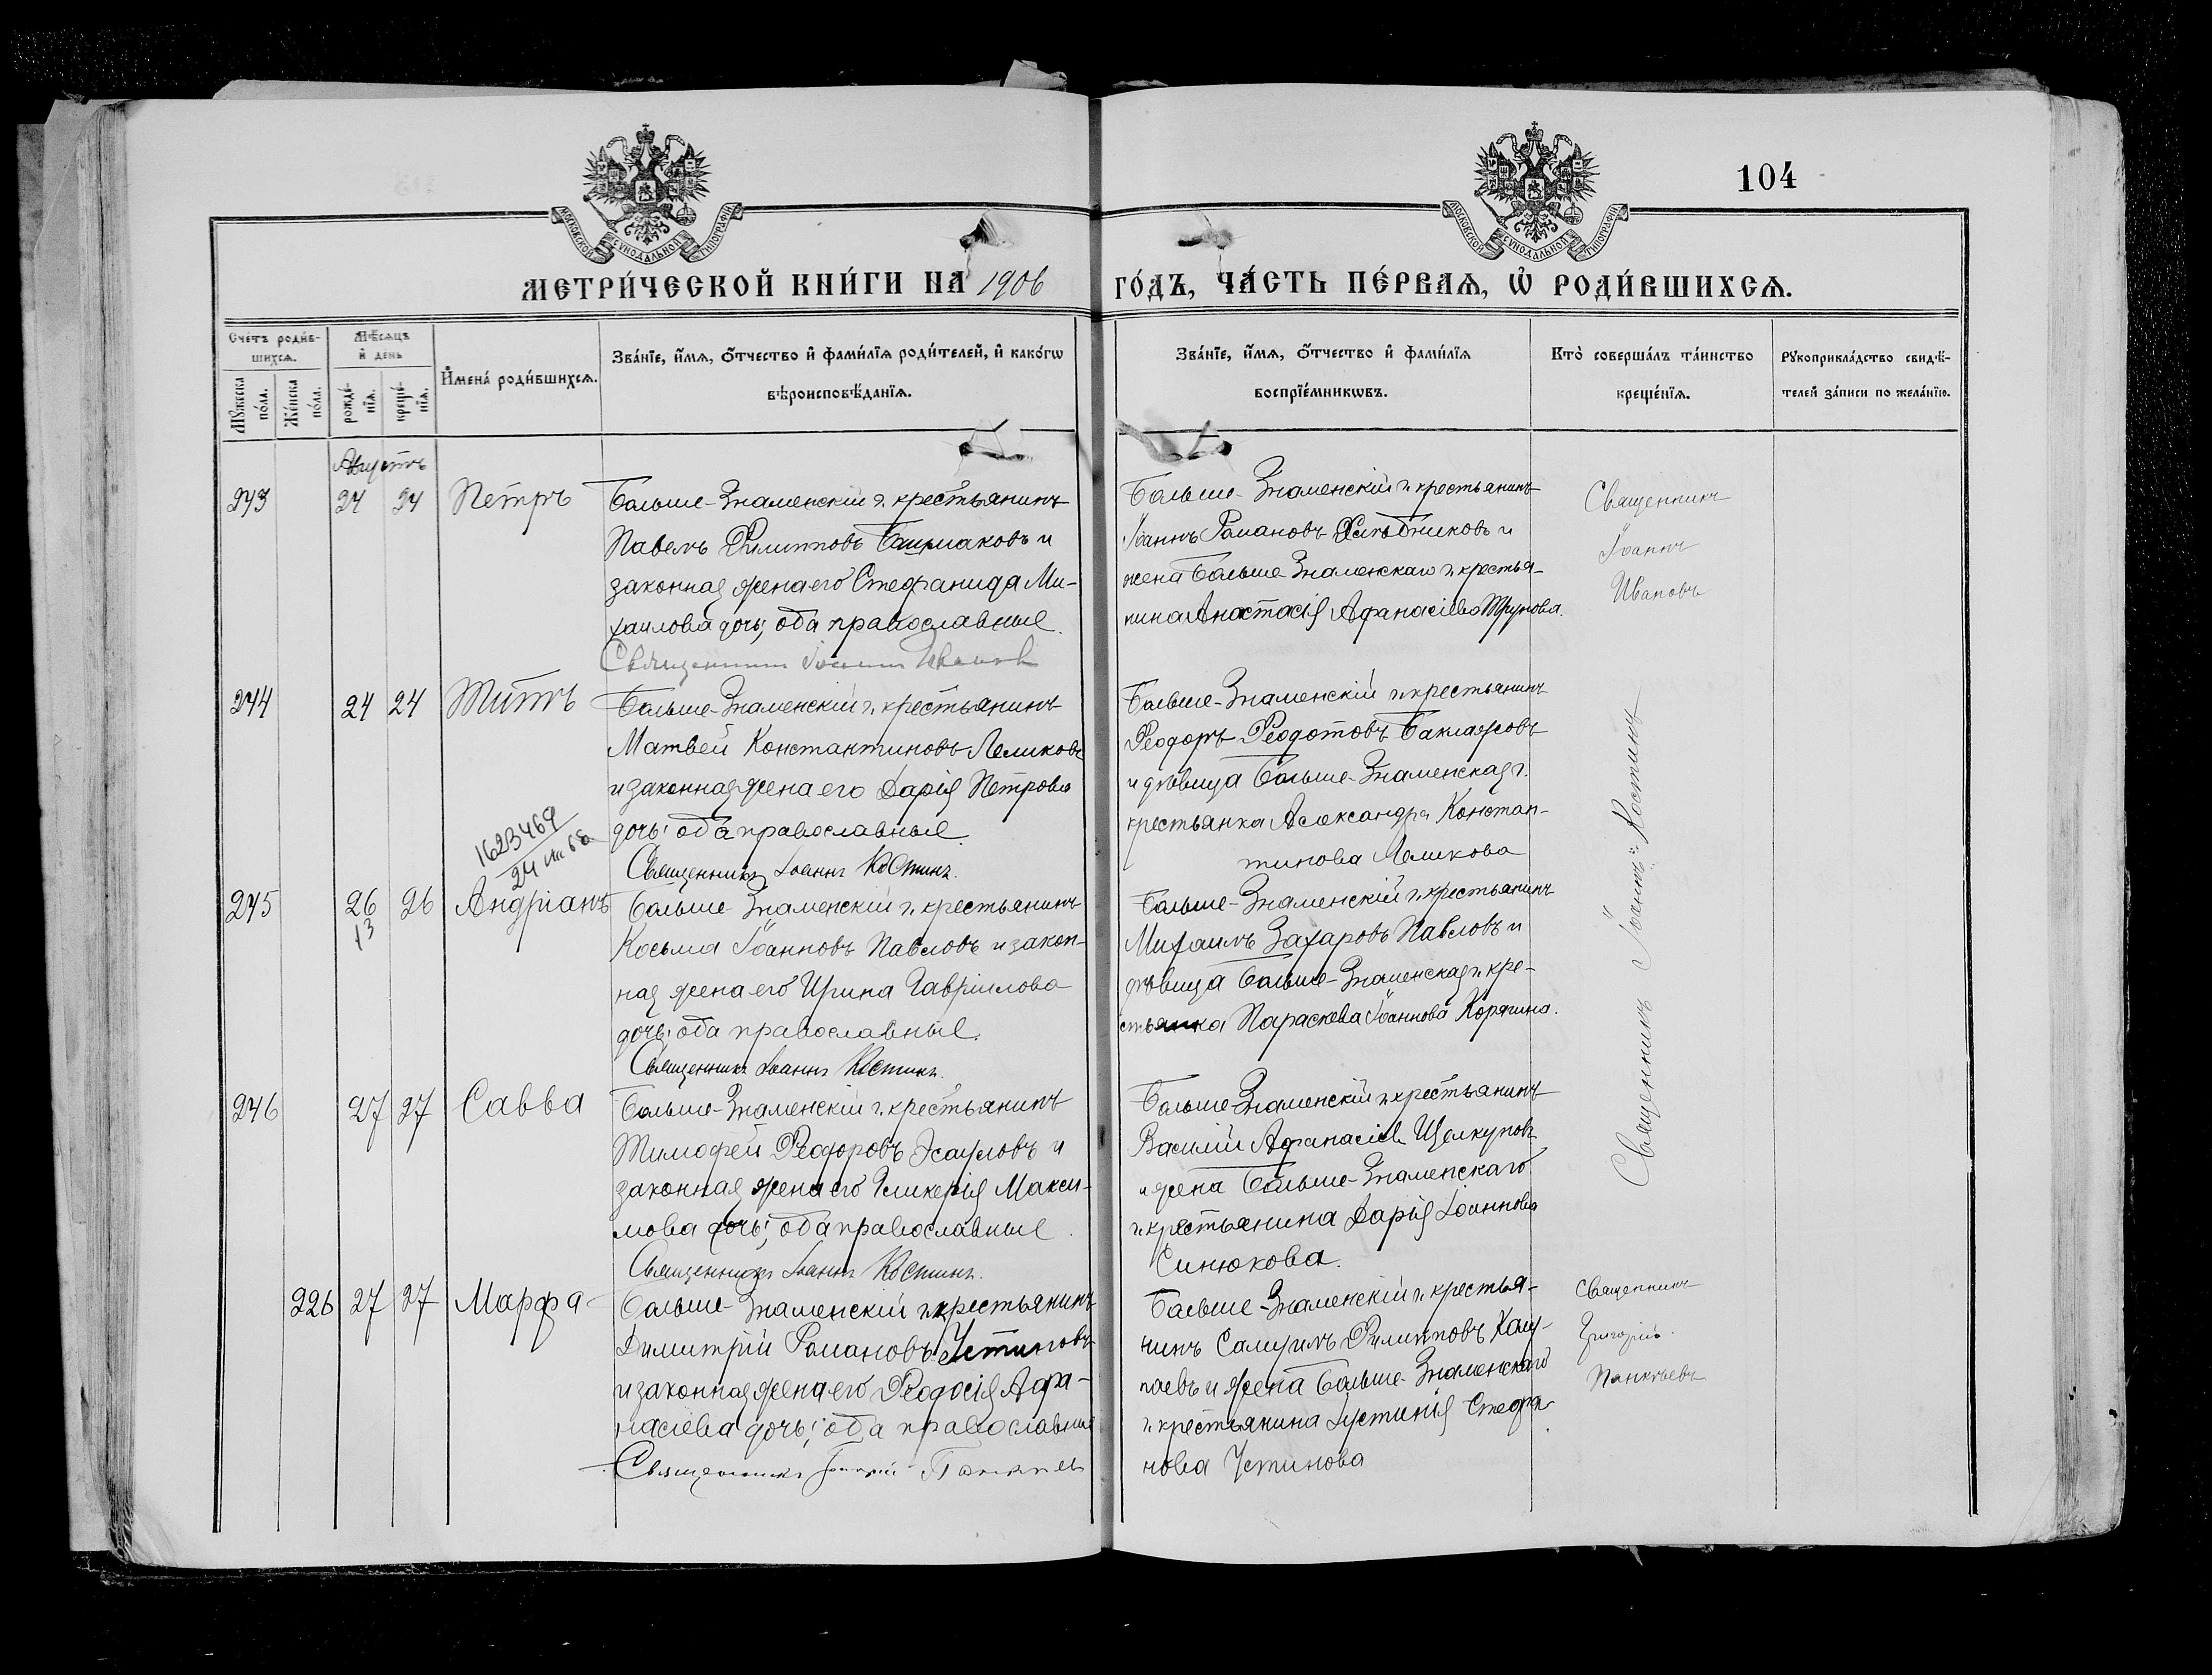 104
МОСКОВСКОЙ СѴНОДАЛЬНОЙ ТИПОГРАФІИ
МОСКОВСКОЙ СѴНОДАЛЬНОЙ ТИПОГРАФІИ
МЕТРИ́ЧЕСКОЙ КНИ́ГИ НА 1906 ГО́ДЪ, ЧА́СТЬ ПЕ́РВАѦ, Ѽ РОДИ́ВШИХСѦ.
Сче́тъ роди́в-
шихсѧ.
Мꙋжеска по́ла.
Же́нска по́ла.
Мѣ́сѧцъ
и҆ день
рожде́-
нїѧ.
креще́-
нїѧ.
И҆мена̀ роди́вшихсѧ.
Зва́нїе, и҆́мѧ, ѻ҆́тчество и҆ фами́лїѧ роди́телей, и҆ како́гѡ
вѣроисповѣ́данїѧ.
Зва́нїе, и҆́мѧ, ѻ҆́тчество и҆ фами́лїѧ
воспрїе́мникѡвъ.
Кто̀ соверша́лъ та́инство
креще́нїѧ.
Рꙋкоприкла́дство свидѣ́-
телей за́писи по жела́нїю.
Августъ
243 24 24 Петръ
Больше-Знаменскій г. крестьянинъ
Павелъ Филипповъ Башмаковъ и
законная жена его Стефанида Ми-
хаилова дочь; оба православные.
Священник Іоанн Иванов
Больше-Знаменскій г. крестьянинъ
Іоаннъ Романовъ Хлѣбниковъ и
жена Больше Знаменскаго г. крестья-
нина Анастасія Афанасіева Трунова.
Священникъ
Іоаннъ
Ивановъ
244 24 24 Титъ
Больше-Знаменскій г. крестьянинъ
Матвей Константиновъ Лемиковъ
и законная жена его Дарія Петрова
дочь; оба православные.
Священникъ Іоаннъ Костинъ.
Больше-Знаменскій г. крестьянинъ
Феодоръ Феодотовъ Баклажовъ
и дѣвица Больше-Знаменская г.
крестьянка Александра Констан-
тинова Лемикова
1623469
24
245 26 26 Андріанъ
13
Больше Знаменскій г. крестьянинъ
Косьма Іоанновъ Павловъ и закон-
ная жена его Ирина Гавріилова
дочь; оба православные.
Священникъ Іоаннъ Костинъ.
Больше-Знаменскій г. крестьянинъ
Михаилъ Захаровъ Павловъ и
дѣвица Больше-Знаменская г. кре-
стьянка Параскева Іоаннова Корягина.
Священникъ Іоаннъ Костинъ
246 27 27 Савва
Больше-Знаменскій г. крестьянинъ
Тимофей Феодоровъ Эсауловъ и
законная жена его Гликерія Макси-
мова дочь; оба православные.
Священникъ Іоаннъ Костинъ.
Больше Знаменскій г. крестьянинъ
Василій Афанасіев Щелкуновъ
и жена Больше-Знаменскаго
г. крестьянина Дарія Іоаннова
Синюкова.
226 27 27 Марфа
Больше-Знаменскій г. крестьянинъ
Димитрій Романовъ Устиновъ
и законная жена его Феодосія Афа-
насіева дочь; оба православные
Священникъ Григорій Панкѣев
Больше-Знаменскій г. крестья-
нинъ Самуилъ Филипповъ
и жена Больше-Знаменскаго
г. крестьянина Іустинія Стефа-
нова Устинова
Священникъ
Григорій
Панкѣевъ